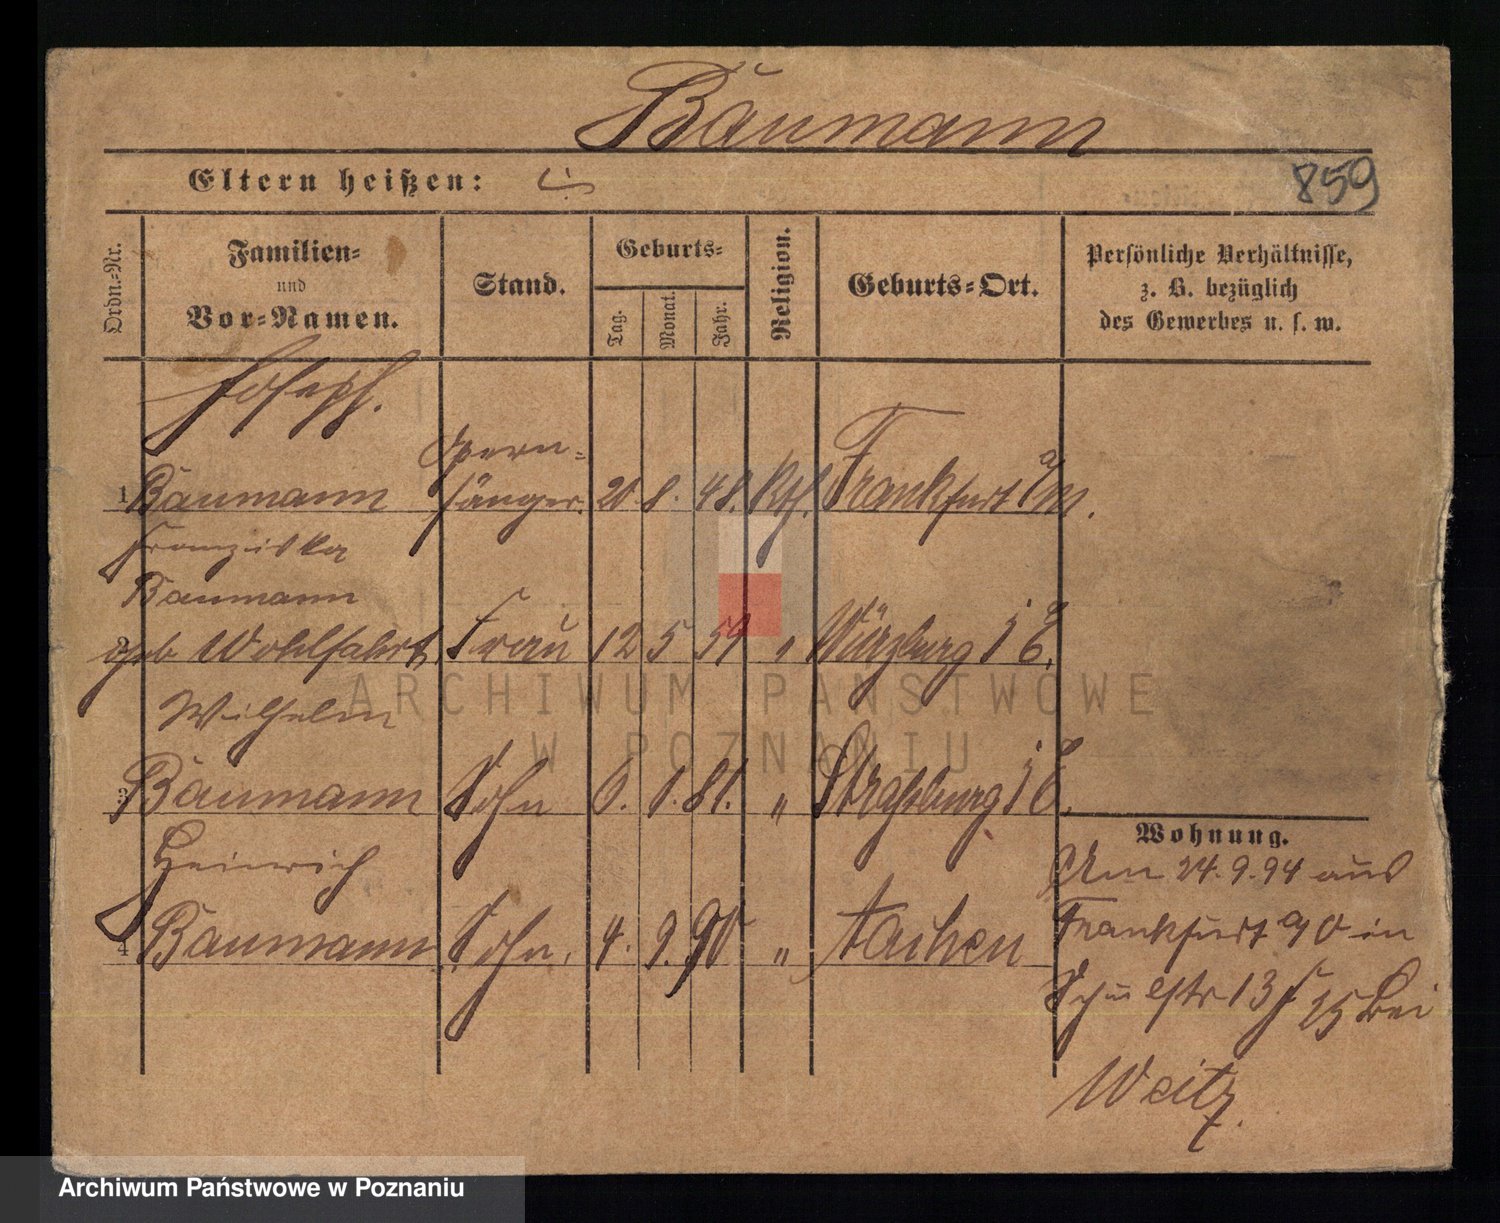 Baumann
Eltern heißen:
859
Ordn.-Nr.
Familien-
und
Vor-Namen.
Stand.
Geburts-
Tag.
Monat.
Jahr.
Religion.
Geburts-Ort.
Persönliche Verhältnisse,
z. B. bezüglich
des Gewerbes u. s. w.
Joseph.
Opern-
1 Baumann sänger. 20. 8. 48. Kth. Frankfurt a/m.
Franziska
Baumann
2 geb Wohlfahrt Frau 12 5 51 " Würzburg i E.
Wilhelm
3 Baumann Sohn 6. 1. 81. " Straßburg i E.
Heinrich
4 Baumann Sohn. 4. 9. 90 " Aachen
Wohnung.
Am 24.9.94 aus
Frankfurt a/O in
13 25 bei
Weitz.
ARCHIWUM PAŃSTWOWE
W POZNANIU
Archiwum Państwowe w Poznaniu